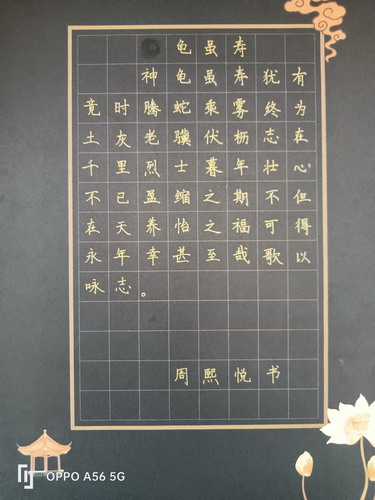 龟虽寿
神龟虽寿犹有
竟时腾蛇乘雾终为
土灰老骥伏枥志在
千里烈士暮年壮心
不已盈缩之期不但
在天养怡之福可得
永年幸甚至哉歌以
咏志。
周熙悦书
OPPO A56 5G